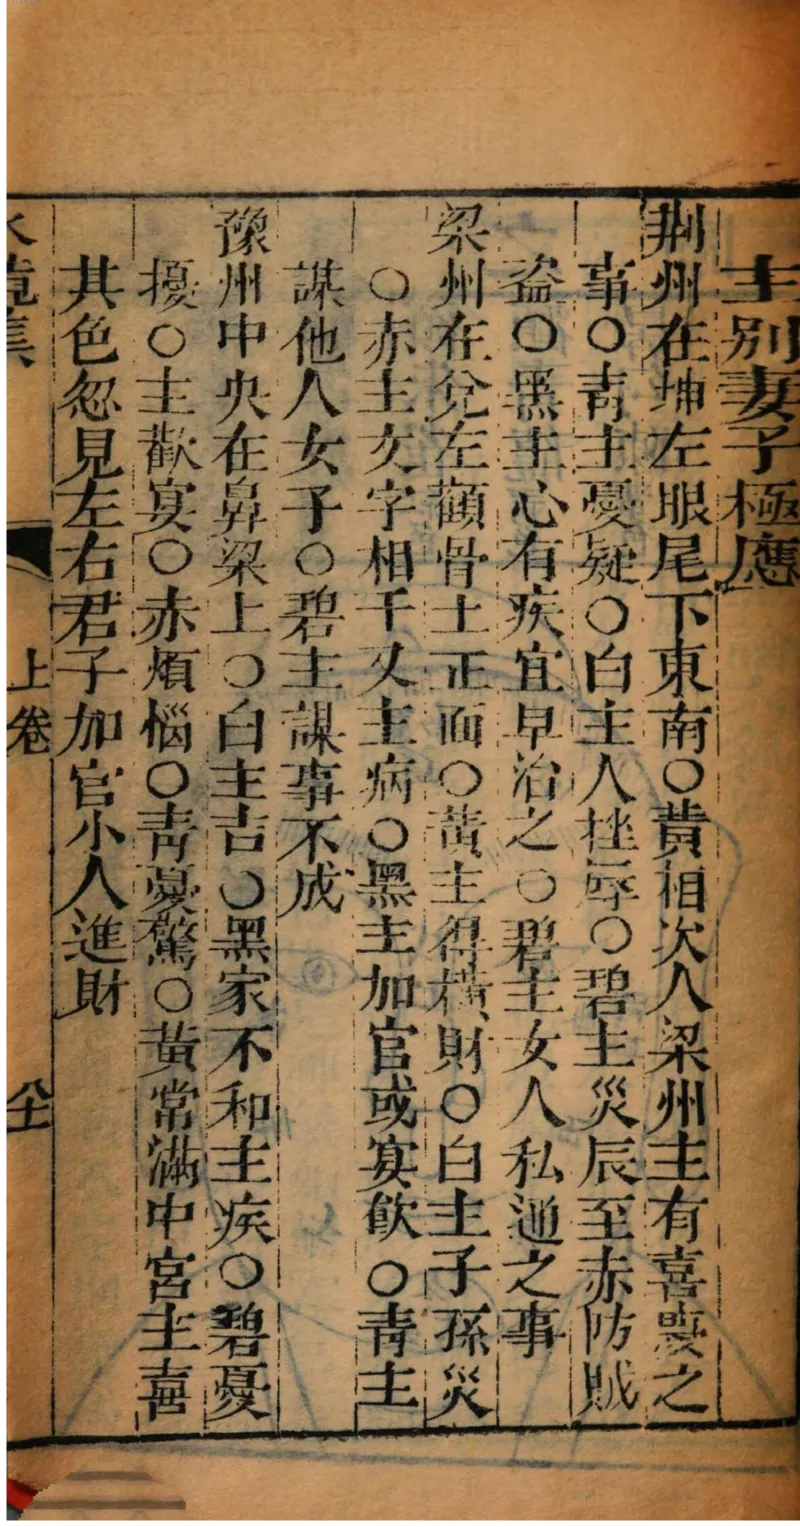 主别妻子極應
荆州在坤左眼尾下東南○黃相次入梁州主有喜慶之
事○靑主憂疑○白主人挫辱○碧主災辰至赤防賊
盗○黑主心有疾宜早治之○碧主女人私通之事
梁州在兊左顴骨上正面○黃主得橫財○白主子孫災
○赤主文字相干又主病○黑主加官或宴飲○靑主
謀他人女子○碧主謀事不成
豫州中央在鼻梁上○白主吉○黑家不和主疾○碧憂
擾○主歡宴○赤煩惱○靑憂驚○黃常滿中宮主喜
其色忽見左右君子加官小人進財
水鏡集
上卷